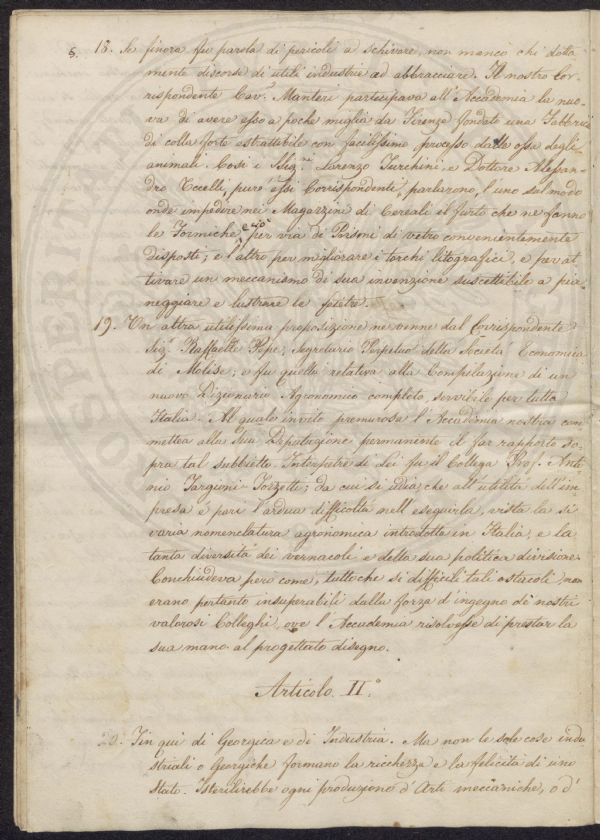 6.
18. Se finora fu parola di pericoli a schivare, non mancò chi dotta
mente discorse di utili industrie ad abbracciare. Il nostro Cor
rispondente Cav.r Manteri partecipava all'Accademia la nuo
va di avere esso a poche miglia da Firenze fondato una Fabbrica
di colla forte estrattibile con facilissimo processo dalle ossa degli
animali. Così i Sig.ri Lorenzo Turchini, e Dottore Alessan
dro Tocelli, pure essi Corrispondenti, parlarono, l'uno sul modo
onde impedire nei Magazzini di Cereali il furto che ne fanno
le Formiche, e ciò per via de' Porsoni di vetro convenientemente
disposti; e l'altro per migliorare i torchi litografici, e per at
tivare un meccanismo di sua invenzione suscettibile a pia
neggiare e lustrare le pietre.
19. Un altra utilissima proposizione ne venne dal Corrispondente
Sig.r Raffaelle Pepe, Segretario Perpetuo della Società Economica
di Molise; e fu quella relativa alla Compilazione di un
nuovo Dizionario Agronomico completo, servibile per tutta
Italia. Al quale invito premurosa l'Accademia nostra com
mettea alla sua Deputazione permanente il far rapporto so
pra tal subbietto. Interpetre di lei fu il Collega Prof. Anto
nio Targioni-Tozzetti; da cui si udia, che all'utilità dell'im
presa è pari l'ardua difficoltà nell'eseguirla, vista la sì
varia nomenclatura agronomica introdotta in Italia, e la
tanta diversità dei vernacoli, e della sua politica divisione.
Conchiudeva però come, tutto che sì difficili tali ostacoli, non
erano pertanto insuperabili dalla forza d'ingegno de' nostri
valorosi Colleghi, ove l'Accademia risolvesse di prestar la
sua mano al progettato disegno.
Articolo. II.°
20. Fin qui di Georgica e di Industria. Ma non le sole cose indu
striali o Georgiche formano la ricchezza e la felicità di uno
Stato. Isterilirebbe ogni produzione d'Arti meccaniche, o d'